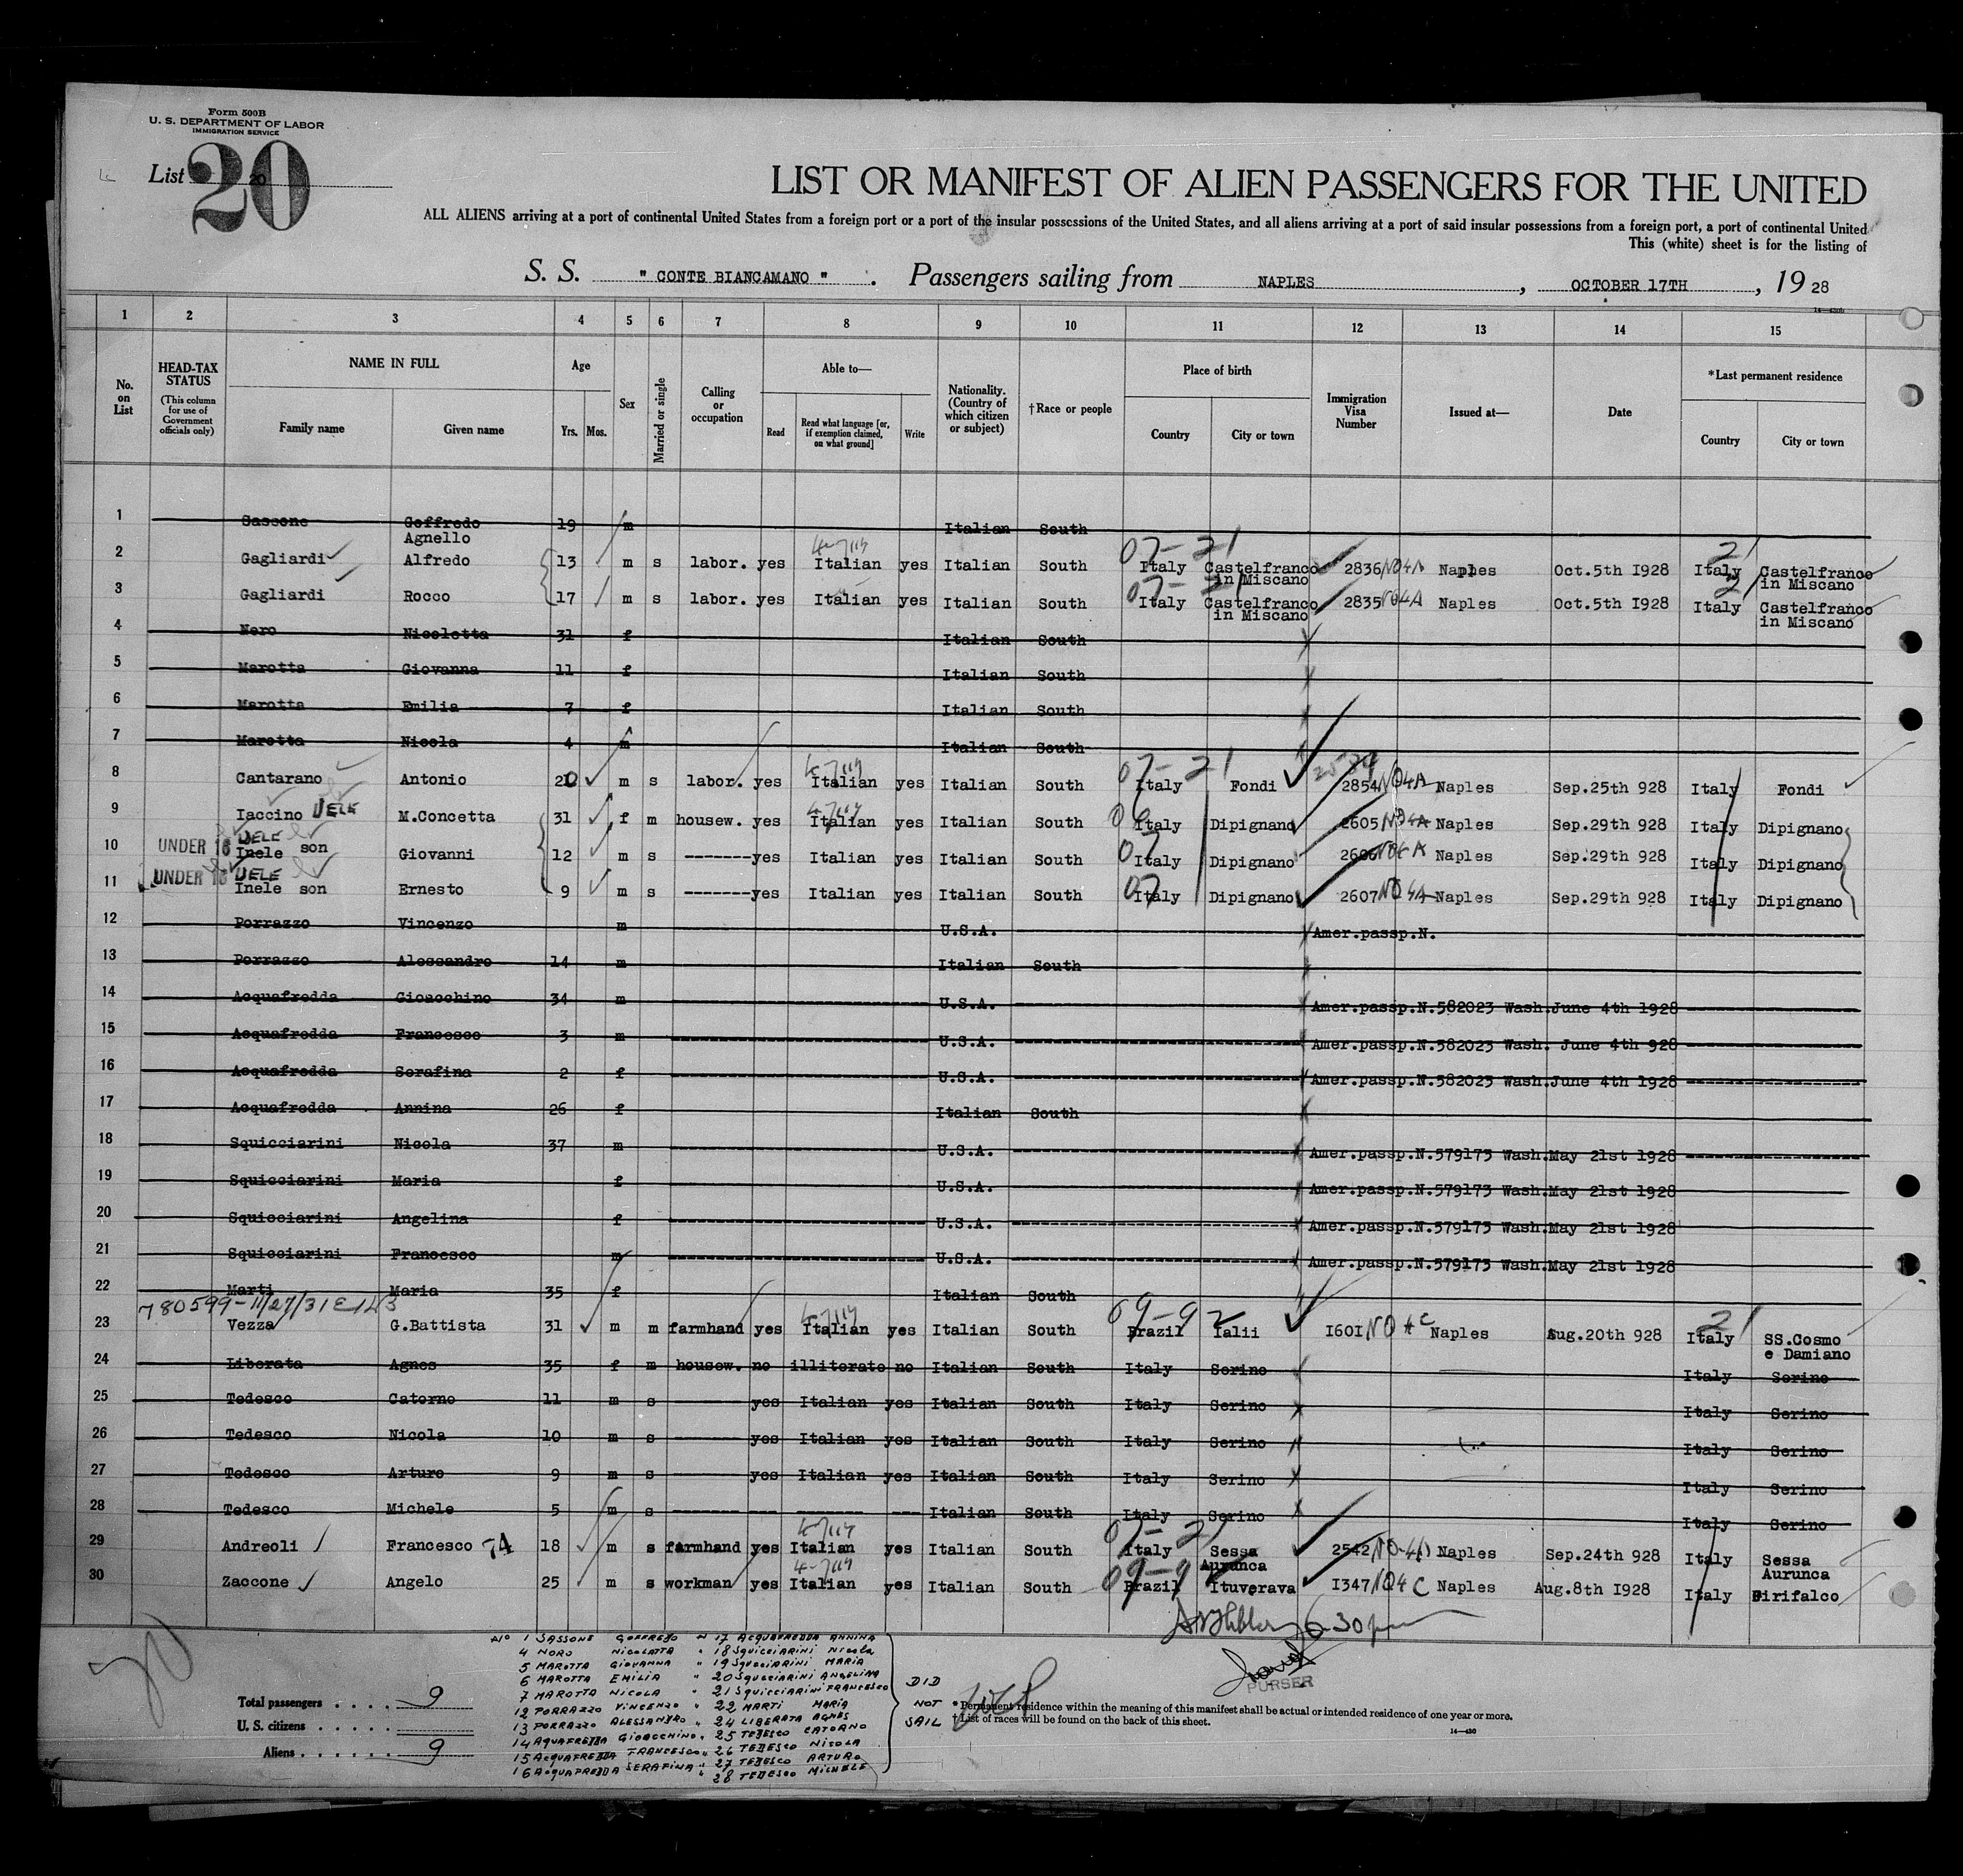 Form 500B
U. S. DEPARTMENT OF LABOR
IMMIGRATION SERVICE
List 20 20
LIST OR MANIFEST OF ALIEN PASSENGERS FOR THE UNITED
ALL ALIENS arriving at a port of continental United States from a foreign port or a port of the insular possessions of the United States, and all aliens arriving at a port of said insular possessions from a foreign port, a port of continental United
This (white) sheet is for the listing of
S. S. " CONTE BIANCAMANO " . Passengers sailing from NAPLES , OCTOBER 17TH , 19 28
1 2 3 4 5 6 7 8 9 10 11 12 13 14 15
No. on List
HEAD-TAX STATUS (This column for use of Government officials only)
NAME IN FULL Family name Given name
Age Yrs. Mos.
Sex
Married or single
Calling or occupation
Able to— Read Read what language [or, if exemption claimed, on what ground] Write
Nationality. (Country of which citizen or subject)
†Race or people
Place of birth Country City or town
Immigration Visa Number
Issued at—
Date
*Last permanent residence Country City or town
1 Sassone Goffredo 19 m Italian South
Agnello
2 Gagliardi Alfredo 13 m s labor. yes Italian yes Italian South Italy Castelfranco in Miscano 2836 NO4A Naples Oct.5th 1928 Italy Castelfranco in Miscano
3 Gagliardi Rocco 17 m s labor. yes Italian yes Italian South Italy Castelfranco in Miscano 2835 NO4A Naples Oct.5th 1928 Italy Castelfranco in Miscano
4 Nero Nicoletta 31 f Italian South
5 Marotta Giovanna 11 f Italian South
6 Marotta Emilia 7 f Italian South
7 Marotta Nicola 4 m Italian South
8 Cantarano Antonio 20 m s labor. yes Italian yes Italian South Italy Fondi 2854 NO4A Naples Sep.25th 928 Italy Fondi
9 Iaccino UELE M.Concetta 31 f m housew. yes Italian yes Italian South Italy Dipignano 2605 NO4A Naples Sep.29th 928 Italy Dipignano
10 UNDER 16 UELE Inele son Giovanni 12 m s -------yes Italian yes Italian South Italy Dipignano 2606 NO4A Naples Sep.29th 928 Italy Dipignano
11 UNDER 16 UELE Inele son Ernesto 9 m s -------yes Italian yes Italian South Italy Dipignano 2607 NO4A Naples Sep.29th 928 Italy Dipignano
12 Porrazzo Vincenzo m U.S.A. Amer.passp.N.
13 Porrazzo Alessandro 14 m Italian South
14 Acquafredda Gioacchino 34 m U.S.A. Amer.passp.N.582023 Wash.June 4th 1928
15 Acquafredda Francesco 3 m U.S.A. Amer.passp.N.582023 Wash. June 4th 928
16 Acquafredda Serafina 2 f U.S.A. Amer.passp.N.582023 Wash.June 4th 1928
17 Acquafredda Annina 26 f Italian South
18 Squicciarini Nicola 37 m U.S.A. Amer.passp.N.579173 Wash.May 21st 1928
19 Squicciarini Maria f U.S.A. Amer.passp.N.579173 Wash.May 21st 1928
20 Squicciarini Angelina f U.S.A. Amer.passp.N.579173 Wash.May 21st 1928
21 Squicciarini Francesco m U.S.A. Amer.passp.N.579173 Wash.May 21st 1928
22 Marti Maria 35 f Italian South
23 Vezza G.Battista 31 m m farmhand yes Italian yes Italian South Brazil Ialii I60I NO4C Naples Aug.20th 928 Italy SS.Cosmo e Damiano
24 Liberata Agnes 35 f m housew. no illiterate no Italian South Italy Serino Italy Serino
25 Tedesco Catorno 11 m s yes Italian yes Italian South Italy Serino Italy Serino
26 Tedesco Nicola 10 m s yes Italian yes Italian South Italy Serino Italy Serino
27 Tedesco Arturo 9 m s yes Italian yes Italian South Italy Serino Italy Serino
28 Tedesco Michele 5 m s Italian South Italy Serino Italy Serino
29 Andreoli Francesco 74 18 m s farmhand yes Italian yes Italian South Italy Sessa Aurunca 2542 Naples Sep.24th 928 Italy Sessa Aurunca
30 Zaccone Angelo 25 m s workman yes Italian yes Italian South Brazil Ituverava I347 NO4C Naples Aug.8th 1928 Italy Girifalco
6 30 pm
PURSER
No 1 SASSONE GOFFREDO " 17 ACQUAFREDDA ANNINA
4 NORO NICOLATTA " 18 SQUICCIARINI NICOLA
5 MAROTTA GIOVANNA " 19 SQUICCIARINI MARIA
6 MAROTTA EMILIA " 20 SQUICCIARINI ANGELINA
7 MAROTTA NICOLA " 21 SQUICCIARINI FRANCESCO
12 PORRAZZO VINCENZO " 22 MARTI MARIA
13 PORRAZZO ALESSANDRO " 24 LIBERATA AGNES
14 AQUAFREDDA GIOACCHINO " 25 TEDESCO CATORNO
15 ACQUAFREDDA FRANCESCO " 26 TEDESCO NICOLA
16 ACQUAFREDDA SERAFINA " 27 TEDESCO ARTURO
" 28 TEDESCO MICHELE
DID
NOT
SAIL
Total passengers . . . . 9
U. S. citizens . . . . .
Aliens . . . . . . 9
* Permanent residence within the meaning of this manifest shall be actual or intended residence of one year or more.
† List of races will be found on the back of this sheet.
14—430